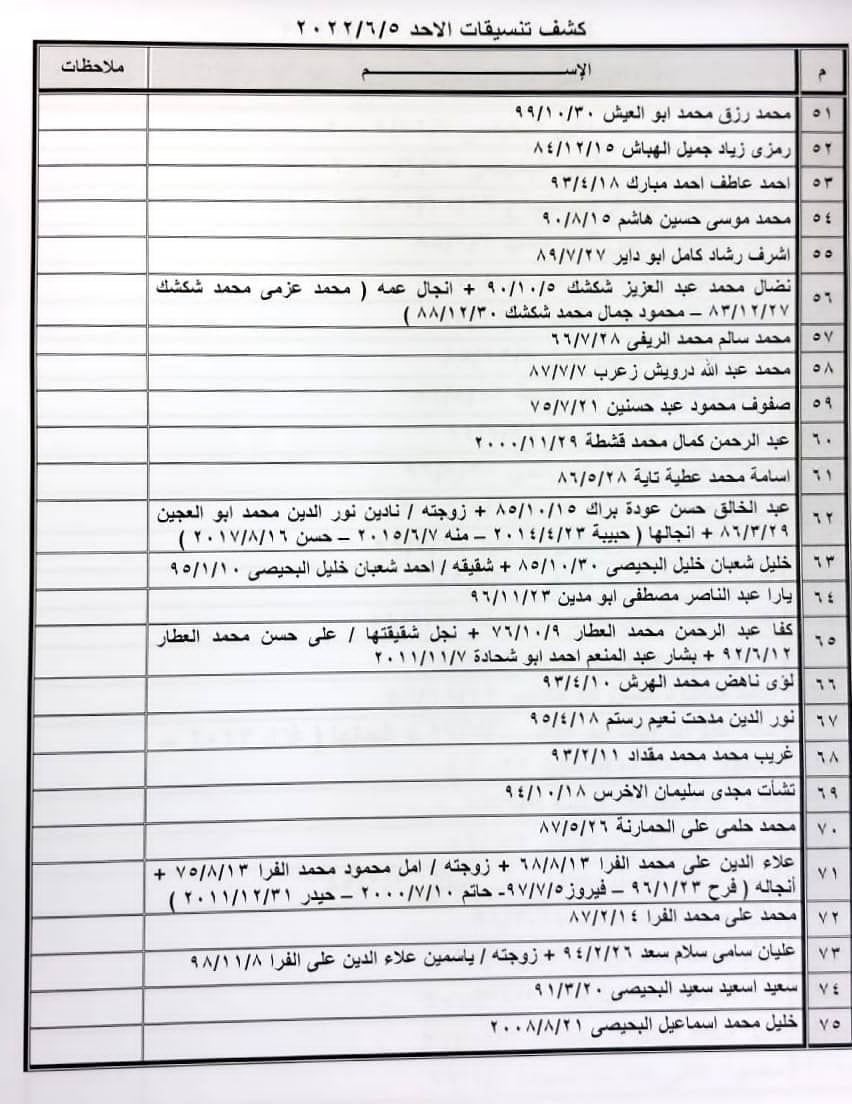 كشف تنسيقات الاحد ٢٠٢٢/٦/٥
م الإســـــــــم ملاحظات
٥١ محمد رزق محمد ابو العيش ٩٩/١٠/٣٠
٥٢ رمزى زياد جميل الهباش ٨٤/١٢/١٥
٥٣ احمد عاطف احمد مبارك ٩٣/٤/١٨
٥٤ محمد موسى حسين هاشم ٩٠/٨/١٥
٥٥ اشرف رشاد كامل ابو داير ٨٩/٧/٢٧
٥٦ نضال محمد عبد العزيز شكشك ٩٠/١٠/٥ + انجال عمه ( محمد عزمى محمد شكشك
٨٣/١٢/٢٧ – محمود جمال محمد شكشك ٨٨/١٢/٣٠ )
٥٧ محمد سالم محمد الريفى ٦٦/٧/٢٨
٥٨ محمد عبد الله درويش زعرب ٨٧/٧/٧
٥٩ صفوف محمود عبد حسنين ٧٥/٧/٢١
٦٠ عبد الرحمن كمال محمد قشطة ٢٠٠٠/١١/٢٩
٦١ اسامة محمد عطية تاية ٨٦/٥/٢٨
٦٢ عبد الخالق حسن عودة براك ٨٥/١٠/١٥ + زوجته / نادين نور الدين محمد ابو العجين
٨٦/٣/٢٩ + انجالها ( حبيبة ٢٠١٤/٤/٢٣ – منه ٢٠١٥/٦/٧ – حسن ٢٠١٧/٨/١٦ )
٦٣ خليل شعبان خليل البحيصى ٨٥/١٠/٣٠ + شقيقه / احمد شعبان خليل البحيصى ٩٥/١/١٠
٦٤ يارا عبد الناصر مصطفى ابو مدين ٩٦/١١/٢٣
٦٥ كفا عبد الرحمن محمد العطار ٧٦/١٠/٩ + نجل شقيقتها / على حسن محمد العطار
٩٢/٦/١٢ + بشار عبد المنعم احمد ابو شحادة ٢٠١١/١١/٧
٦٦ لؤى ناهض محمد الهرش ٩٣/٤/١٠
٦٧ نور الدين مدحت نعيم رستم ٩٥/٤/١٨
٦٨ غريب محمد محمد مقداد ٩٣/٢/١١
٦٩ تشأت مجدى سليمان الاخرس ٩٤/١٠/١٨
٧٠ محمد حلمى على الحمارنة ٨٧/٥/٢٦
٧١ علاء الدين على محمد الفرا ٦٨/٨/١٣ + زوجته / امل محمود محمد الفرا ٧٥/٨/١٣ +
أنجاله ( فرح ٩٦/١/٢٣ – فيروز٩٧/٧/٥- حاتم ٢٠٠٠/٧/١٠ – حيدر ٢٠١١/١٢/٣١ )
٧٢ محمد على محمد الفرا ٨٧/٢/١٤
٧٣ عليان سامى سلام سعد ٩٤/٢/٢٦ + زوجته / ياسمين علاء الدين على الفرا ٩٨/١١/٨
٧٤ سعيد اسعيد سعيد البحيصى ٩١/٣/٢٠
٧٥ خليل محمد اسماعيل البحيصى ٢٠٠٨/٨/٢١